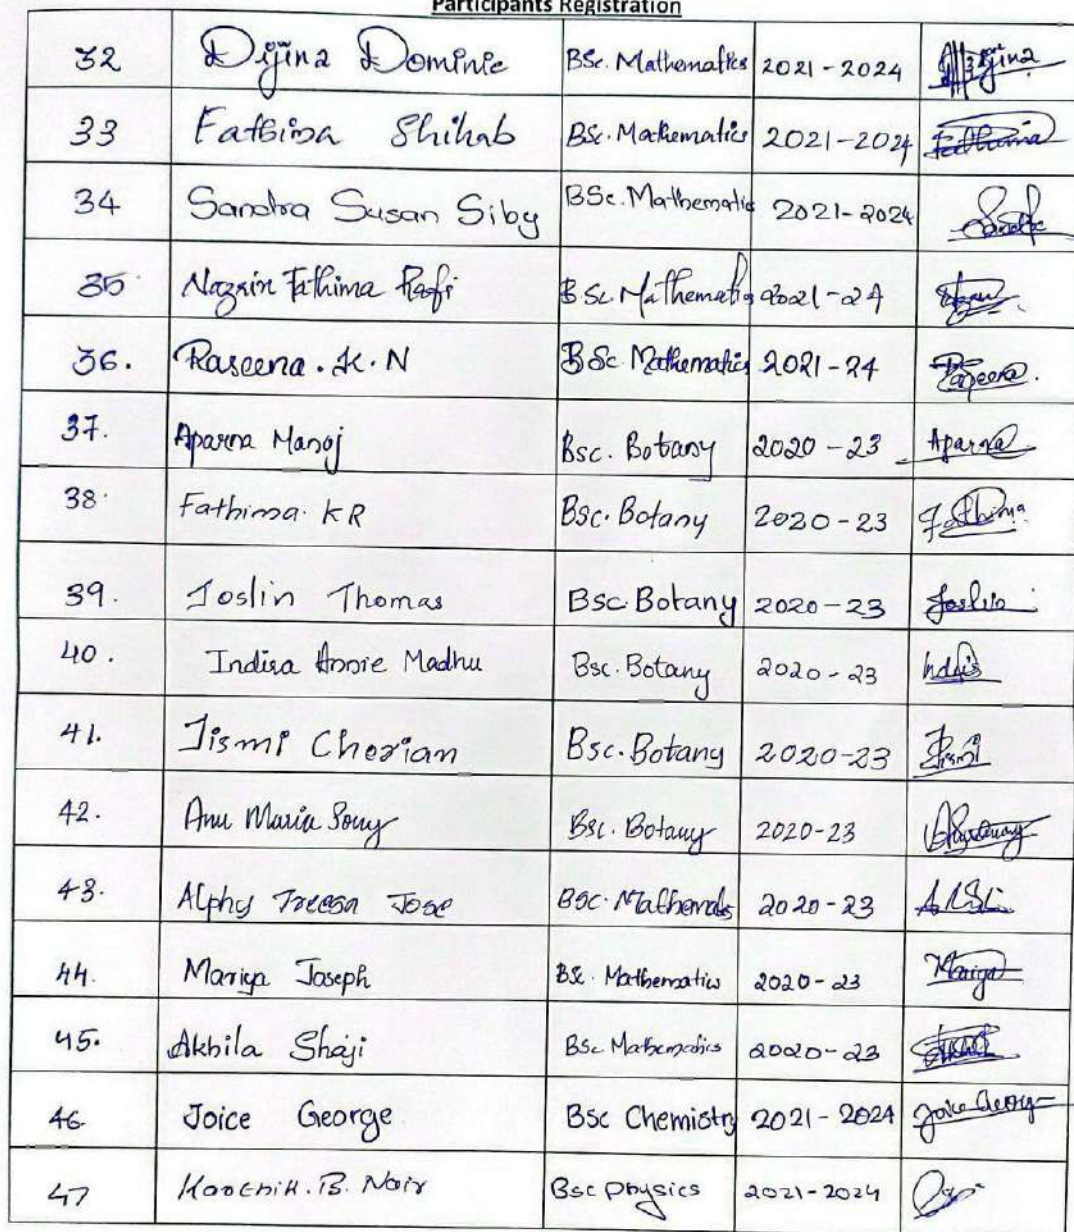 Participants Registration
32 Dijina Dominic BSc. Mathematics 2021-2024 Dijina
33 Fathima Shihab BSc. Mathematics 2021-2024 Fathima
34 Sandra Susan Siby BSc. Mathematics 2021-2024
35 Nazrin Fathima Rafi BSc Mathematics 2021-24
36. Raseena. K. N BSc Mathematics 2021-24 Raseena.
37. Aparna Manoj Bsc. Botany 2020-23 Aparna
38 Fathima KR Bsc. Botany 2020-23 Fathima
39. Joslin Thomas Bsc Botany 2020-23 Joslin
40. Indira Annie Madhu Bsc. Botany 2020-23
41. Jismi Cherian Bsc. Botany 2020-23 Jismi
42. Anu Maria Sony Bsc. Botany 2020-23
43. Alphy Treesa Jose BSc. 2020-23
44. Mariya Joseph BSc. Mathematics 2020-23 Mariya
45. Akhila Shaji BSc Mathematics 2020-23
46. Joice George BSc Chemistry 2021-2024 Joice George
47 B. Nair Bsc Physics 2021-2024